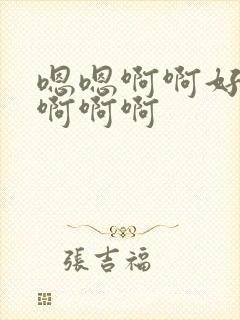 嗯嗯啊啊好
啊啊啊
張吉福